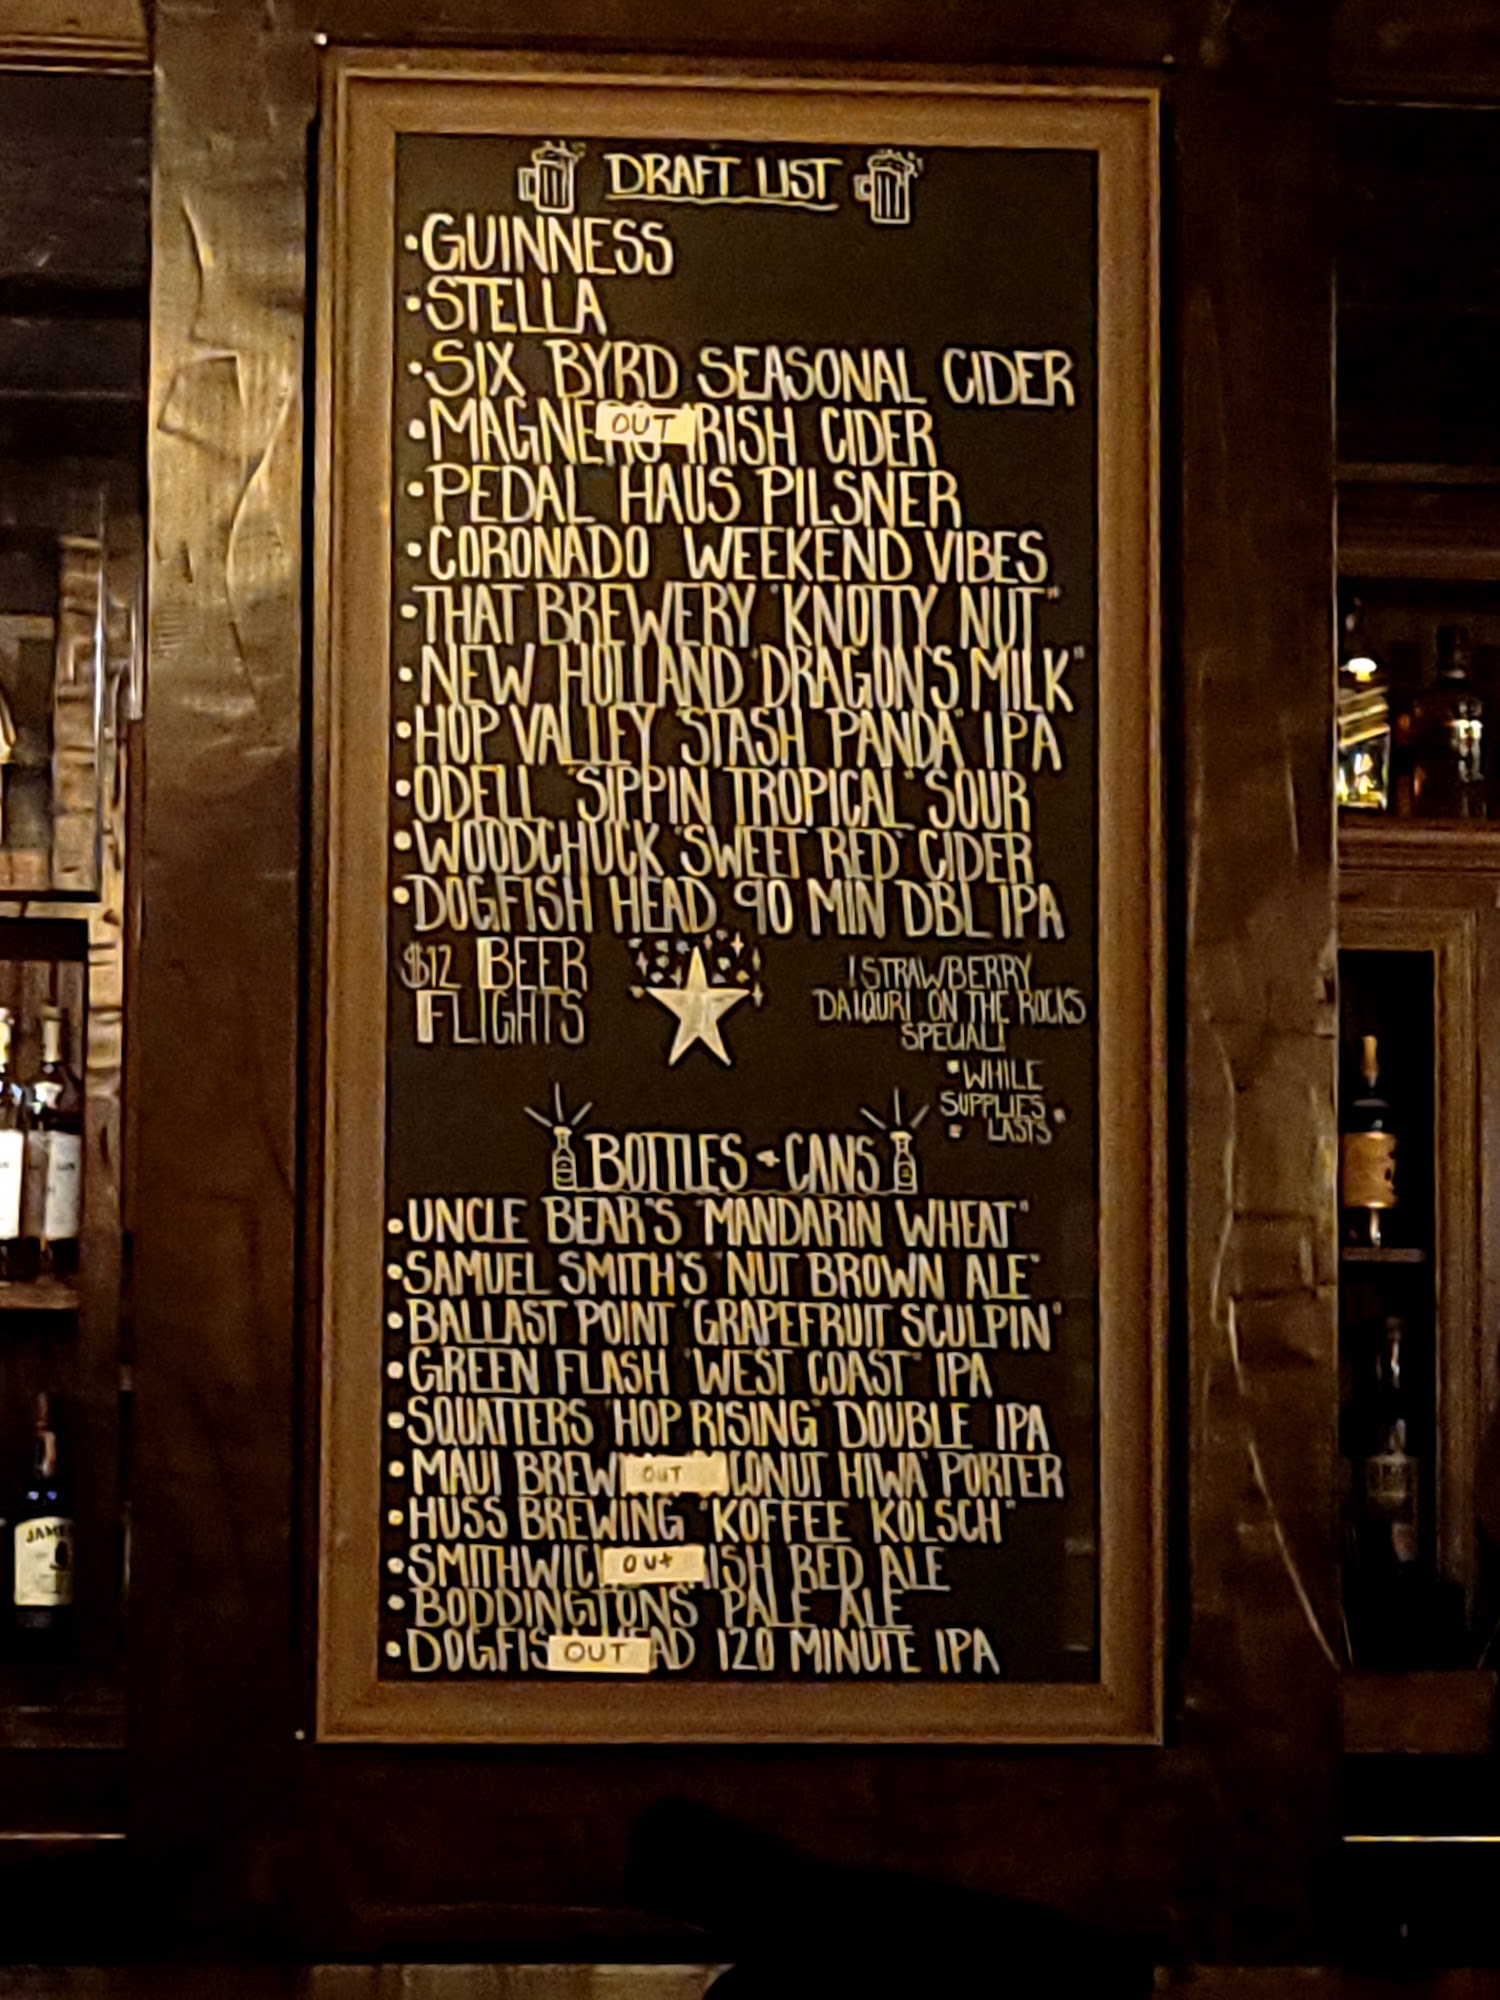 DRAFT LIST
•GUINNESS
•STELLA
•SIX BYRD SEASONAL CIDER
•MAGNERS OUT IRISH CIDER
•PEDAL HAUS PILSNER
•CORONADO WEEKEND VIBES
•THAT BREWERY "KNOTTY NUT"
•NEW HOLLAND "DRAGON'S MILK"
•HOP VALLEY "STASH PANDA" IPA
•ODELL "SIPPIN TROPICAL" SOUR
•WOODCHUCK "SWEET RED" CIDER
•DOGFISH HEAD 90 MIN DBL IPA
$12 BEER
FLIGHTS
! STRAWBERRY
DAIQURI ON THE ROCKS
SPECIAL!
*WHILE
SUPPLIES
LASTS
BOTTLES + CANS
•UNCLE BEAR'S "MANDARIN WHEAT"
•SAMUEL SMITH'S "NUT BROWN ALE"
•BALLAST POINT "GRAPEFRUIT SCULPIN"
•GREEN FLASH "WEST COAST" IPA
•SQUATTERS "HOP RISING" DOUBLE IPA
•MAUI BREW OUT CONUT HIWA" PORTER
•HUSS BREWING "KOFFEE KOLSCH"
•SMITHWIC OUT ISH RED ALE
•BODDINGTONS PALE ALE
•DOGFIS OUT EAD 120 MINUTE IPA
JAME